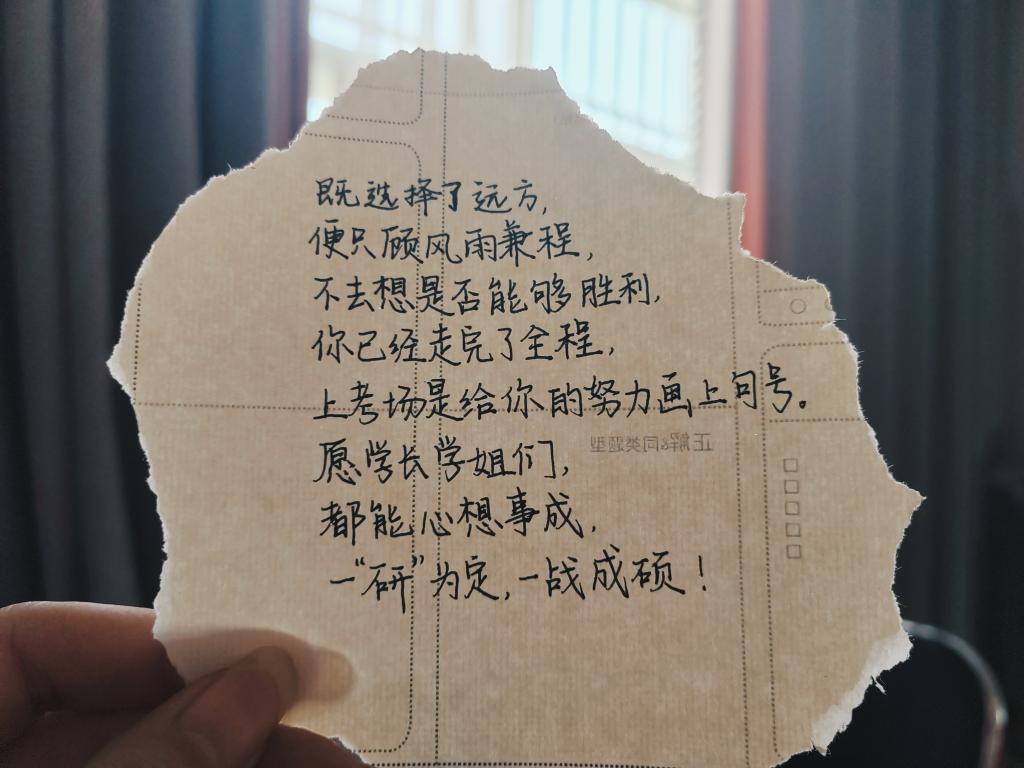 既选择了远方,
便只顾风雨兼程,
不去想是否能够胜利,
你已经走完了全程,
上考场是给你的努力画上句号。
正解&同类题型
愿学长学姐们,
都能心想事成,
一“研”为定,一战成硕!